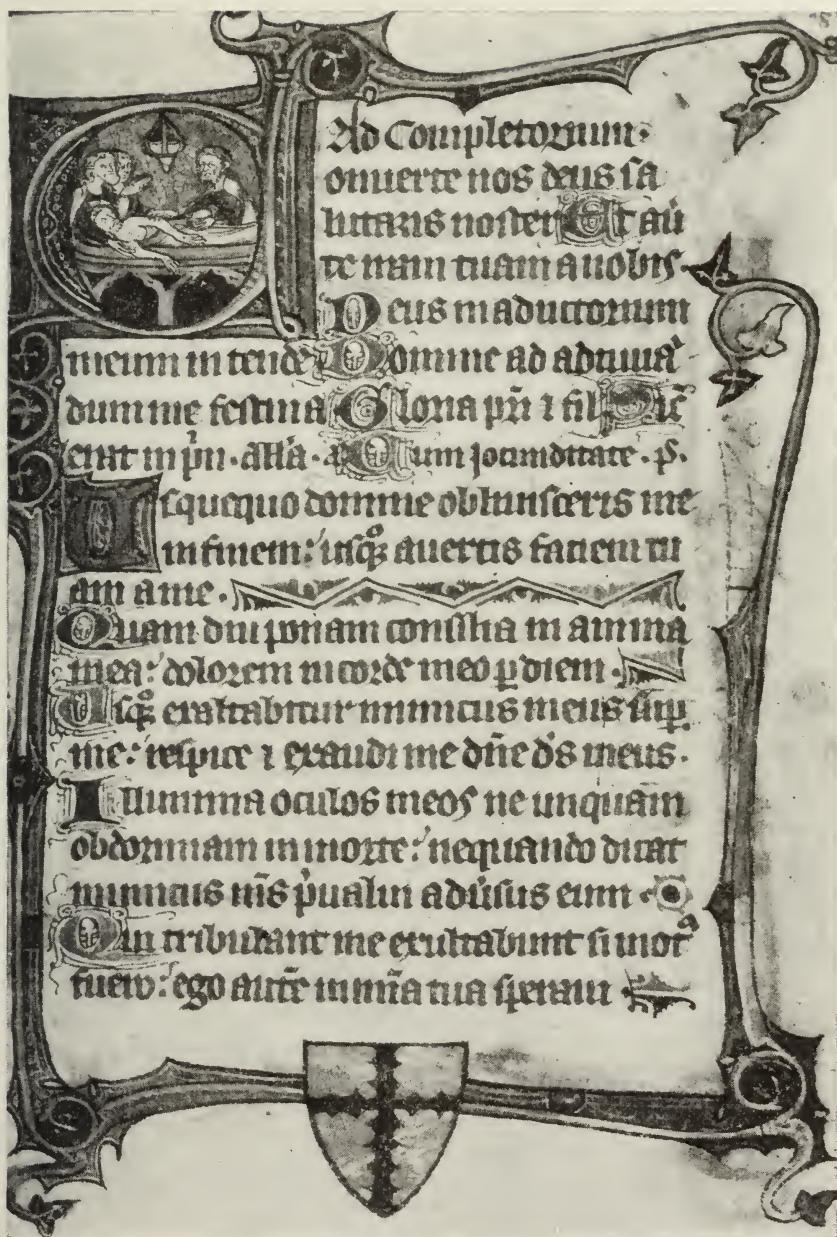 Ad Completorium.
Conuerte nos deus sa
lutaris noster Et auer
te iram tuam a nobis.
Deus in adiutorium
meum intende Domine ad adiuua
dum me festina Gloria pri ⁊ fil Sic
erat in prin. alla. a Cum jocunditate. ps.
Usquequo domine obliuisceris me
in finem: usqꝫ auertis faciem tu
am a me.
Quam diu ponam consilia in anima
mea: dolorem in corde meo ꝑ diem.
Usqꝫ exaltabitur inimicus meus suꝑ
me: respice ⁊ exaudi me dn̄e ds̄ meus.
Illumina oculos meos ne unquam
obdormiam in morte: nequando dicat
inimicus ms̄ p̓ualui adu̓sus eum.
Qui tribulant me exultabunt si motꝰ
fuero: ego aut̄ in mīa tua speraui